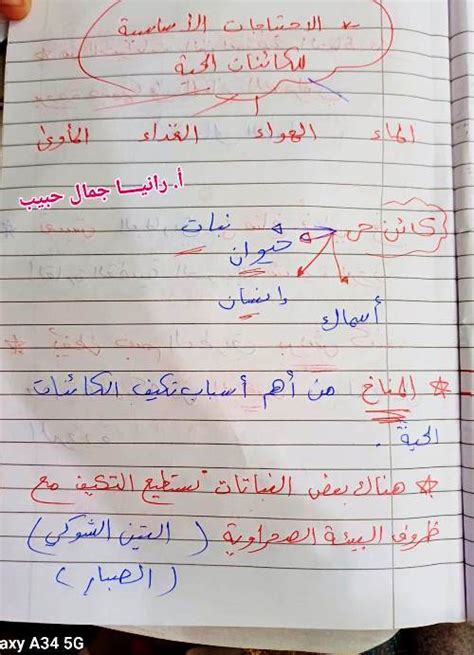 * الاحتياجات الأساسية
للكائنات الحية
الماء الهواء الغذاء المأوى
أ. رانيـــا جمال حبيب
كائن حي نبات
حيوان
إنسان
أسماك
* المناخ من أهم أسباب تكيف الكائنات
الحية .
* هناك بعض النباتات تستطيع التكيف مع
ظروف البيئة الصحراوية ( التين الشوكي )
( الصبار )
axy A34 5G